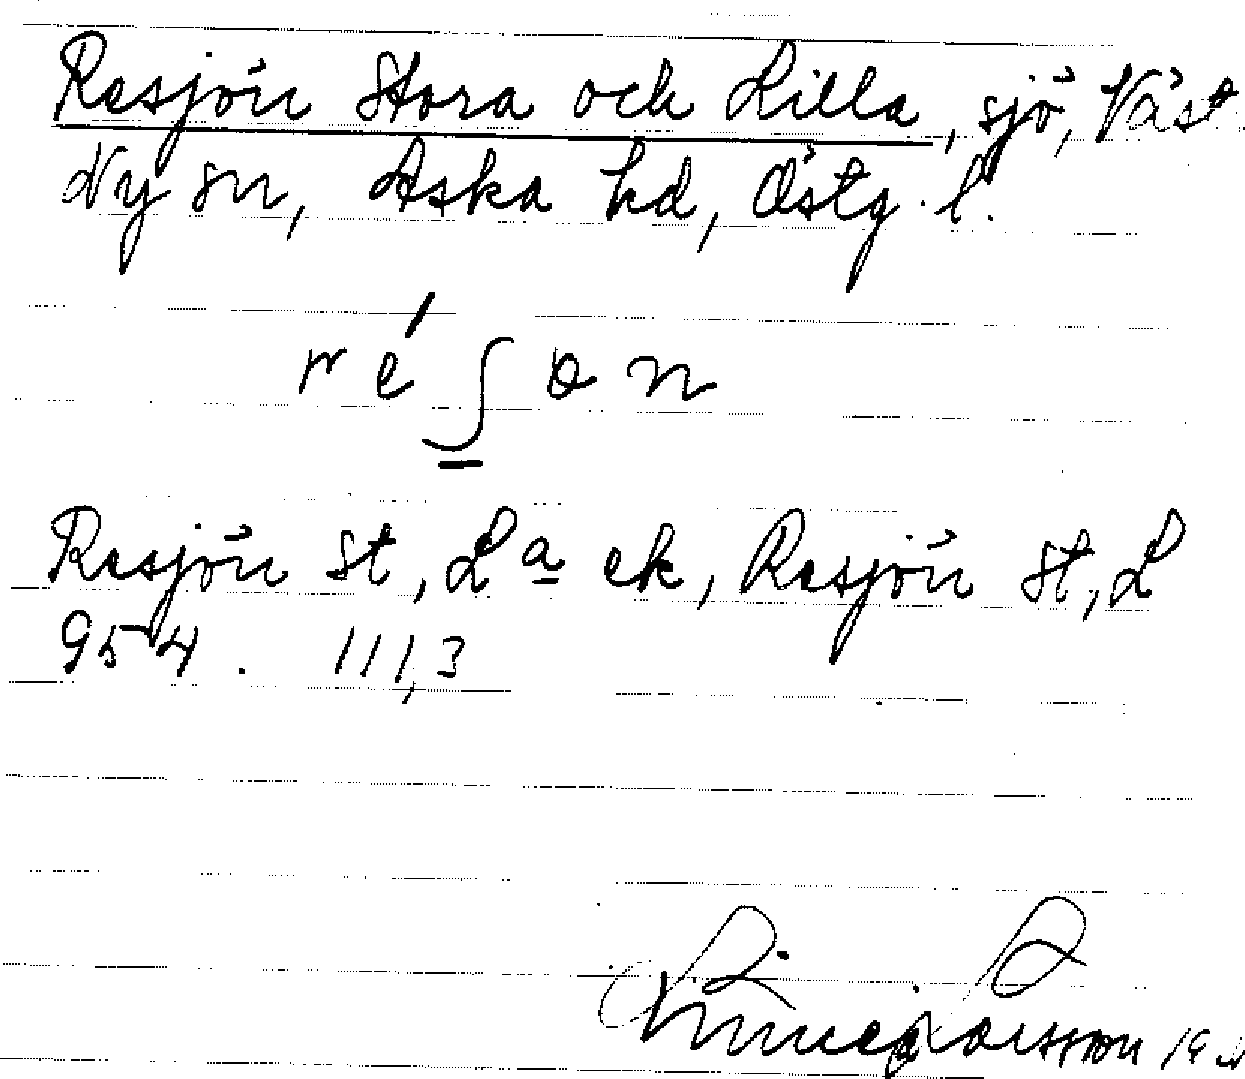 Resjön Stora och Lilla, sjö, Väst.
Ny sn, Aska hd, Östg. l.
ré ʃ ɵ n
Resjön St, Lª ek, Resjön St, L
954. 111,3